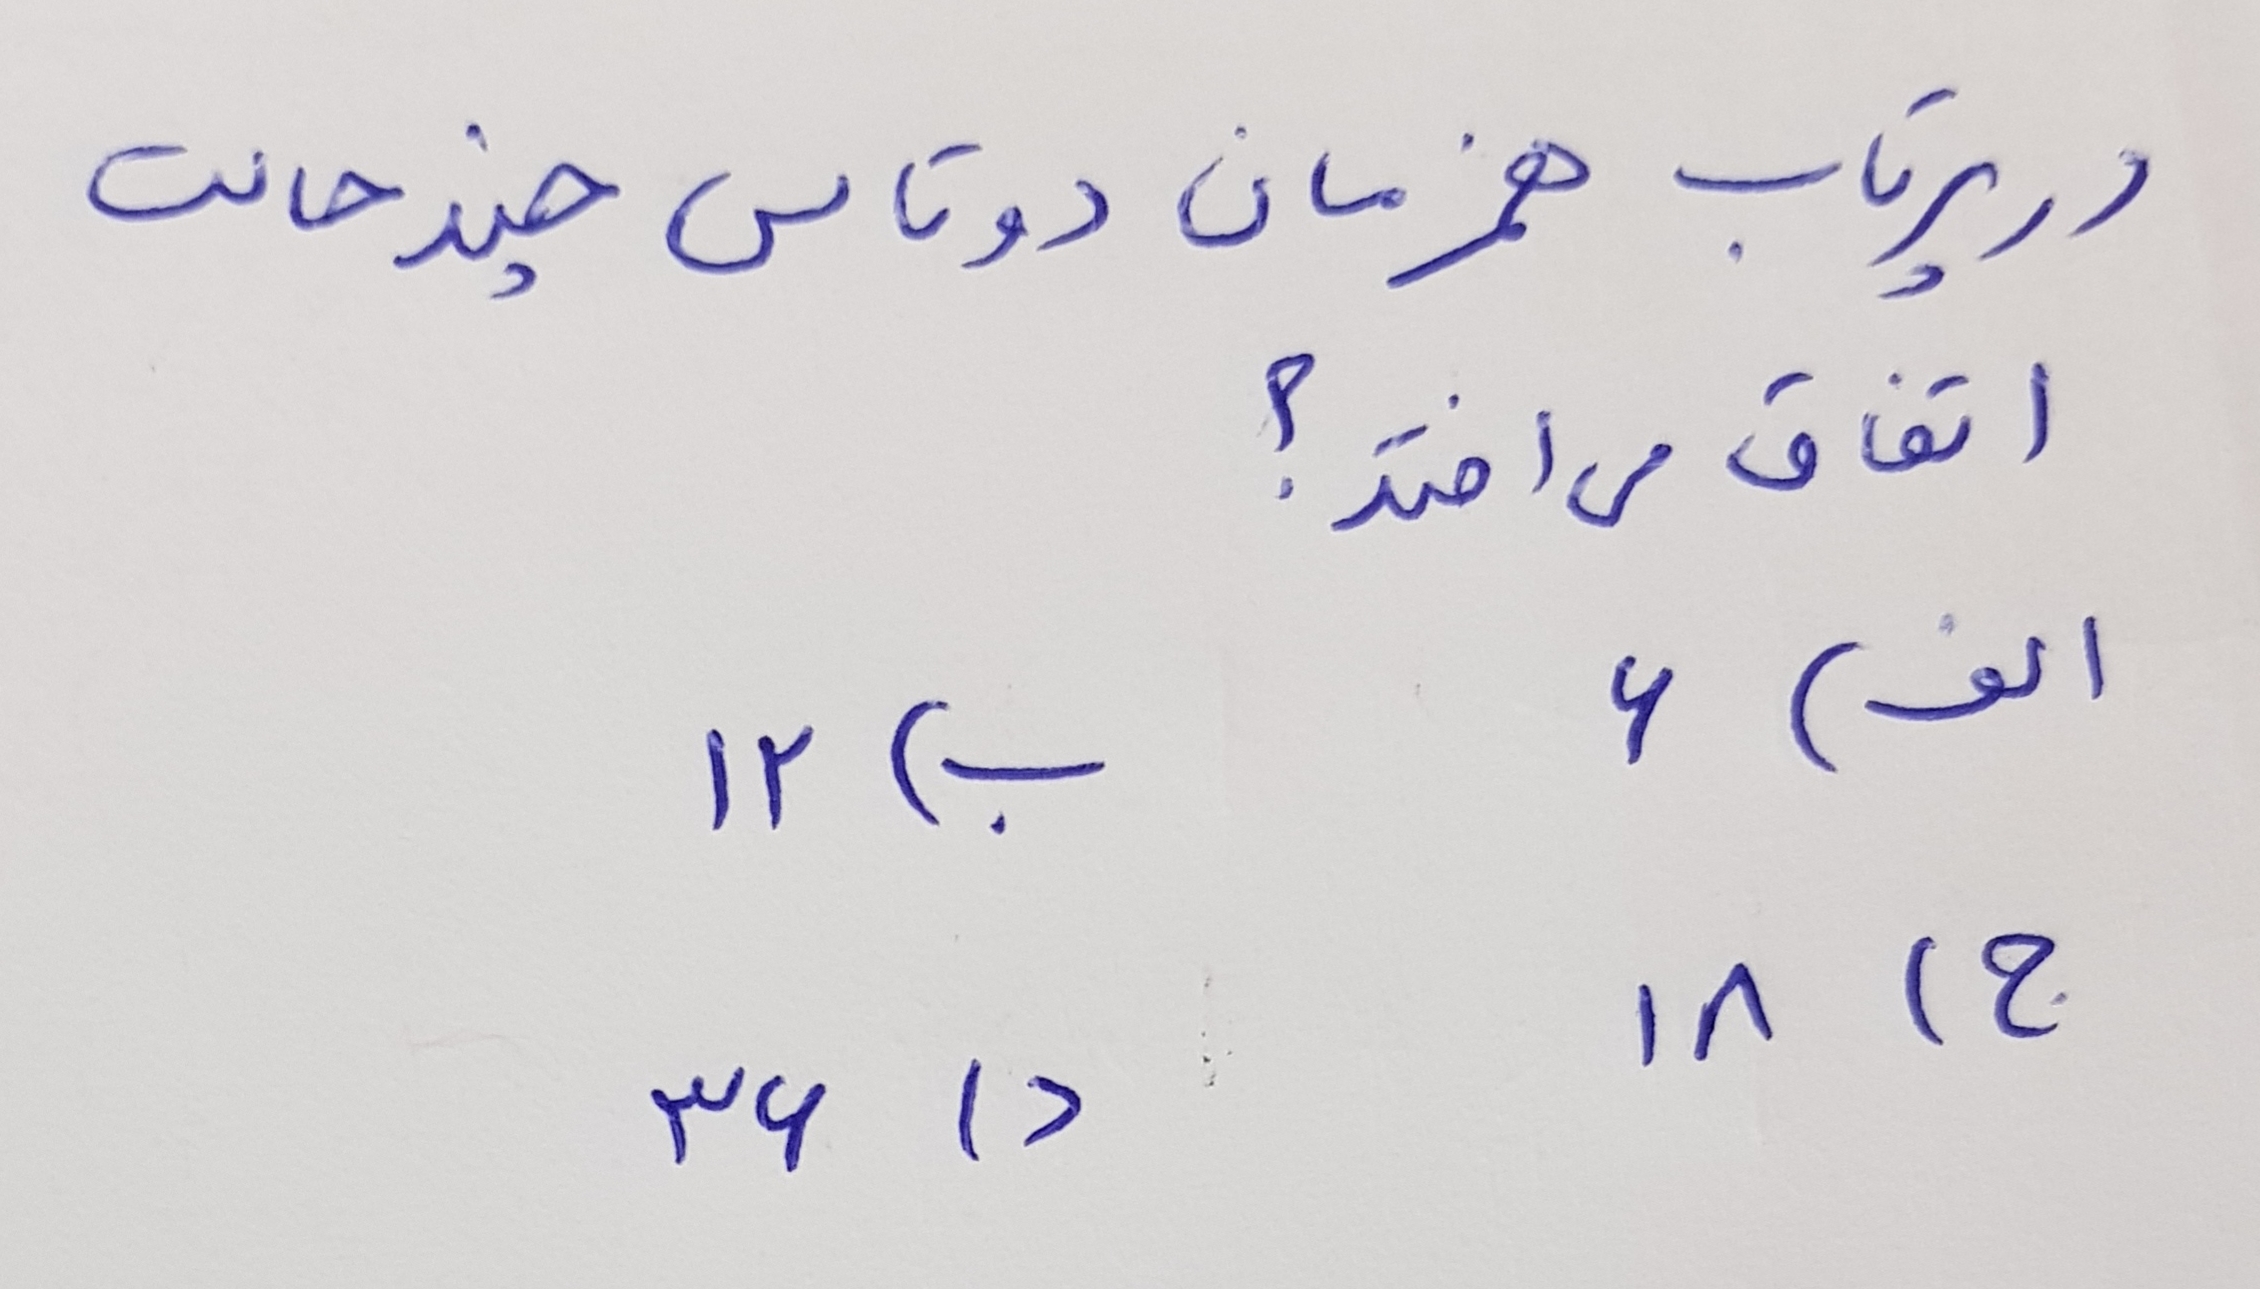 در پرتاب همزمان دو تاس چند حالت
اتفاق می افتد؟
الف) ۶
ب) ۱۲
ج) ۱۸
د) ۳۶